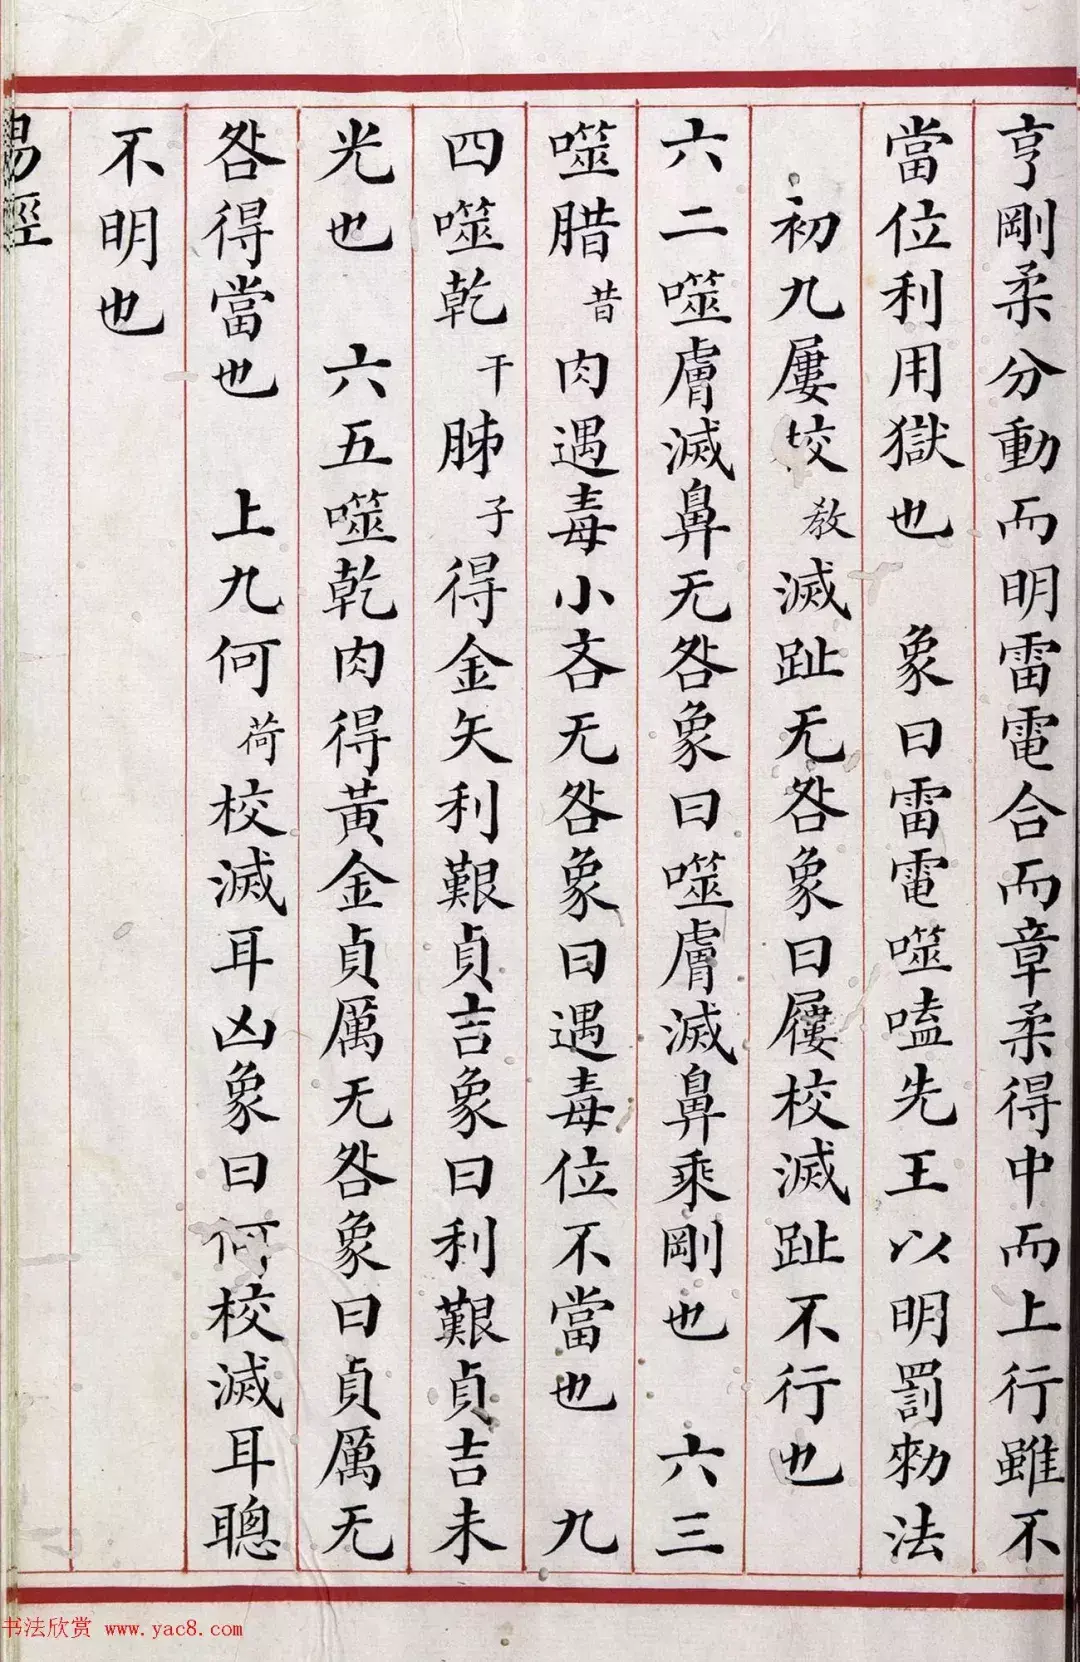 亨剛柔分動而明雷電合而章柔得中而上行雖不
當位利用獄也　象曰雷電噬嗑先王以明罰勑法
初九屨校教滅趾无咎象曰屨校滅趾不行也
六二噬膚滅鼻无咎象曰噬膚滅鼻乘剛也　六三
噬腊昔肉遇毒小吝无咎象曰遇毒位不當也　九
四噬乾干胏子得金矢利艱貞吉象曰利艱貞吉未
光也　六五噬乾肉得黃金貞厲无咎象曰貞厲无
咎得當也　上九何荷校滅耳凶象曰何校滅耳聰
不明也
易經
书法欣赏 www.yac8.com